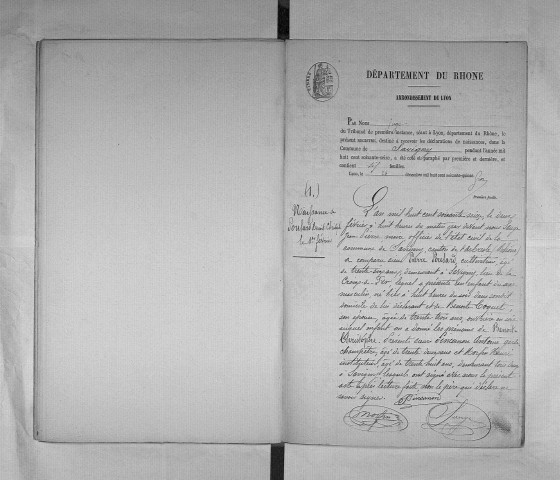 DÉPARTEMENT DU RHONE
ARRONDISSEMENT DE LYON
Par Nous
du Tribunal de première instance, séant à Lyon, département du Rhône, le
présent registre, destiné à recevoir les déclarations de naissances, dans la
Commune de Savigny pendant l'année mil
huit cent soixante-seize, a été coté et paraphé par première et dernière, et
contient feuilles.
Lyon, le décembre mil huit cent soixante-quinze
Première feuille.
(1.)
Naissance de
Poulard Benoit Christophe
le 1er février
L'an mil huit cent soixante seize, le deux
février à huit heures du matin par devant nous
maire officier de l'état civil de la
commune de Savigny, canton de l'Arbresle, Rhône
a comparu sieur Pierre Poulard, cultivateur, âgé
de trente six ans, demeurant à Savigny, lieu de la
Croix de Fer, lequel a présenté un enfant du sexe
masculin, né hier à huit heures du soir dans son dit
domicile de lui déclarant et de Benoite Coquet
son épouse, âgée de trente trois ans,
auquel enfant on a donné les prénoms de Benoit
Christophe. Présents sieurs Antoine garde
champêtre, âgé de trente cinq ans et
instituteur, âgé de trente huit ans, demeurant tous deux
à Savigny, lesquels ont signé avec nous le présent
acte après lecture faite non le père qui déclare ne
savoir signer.